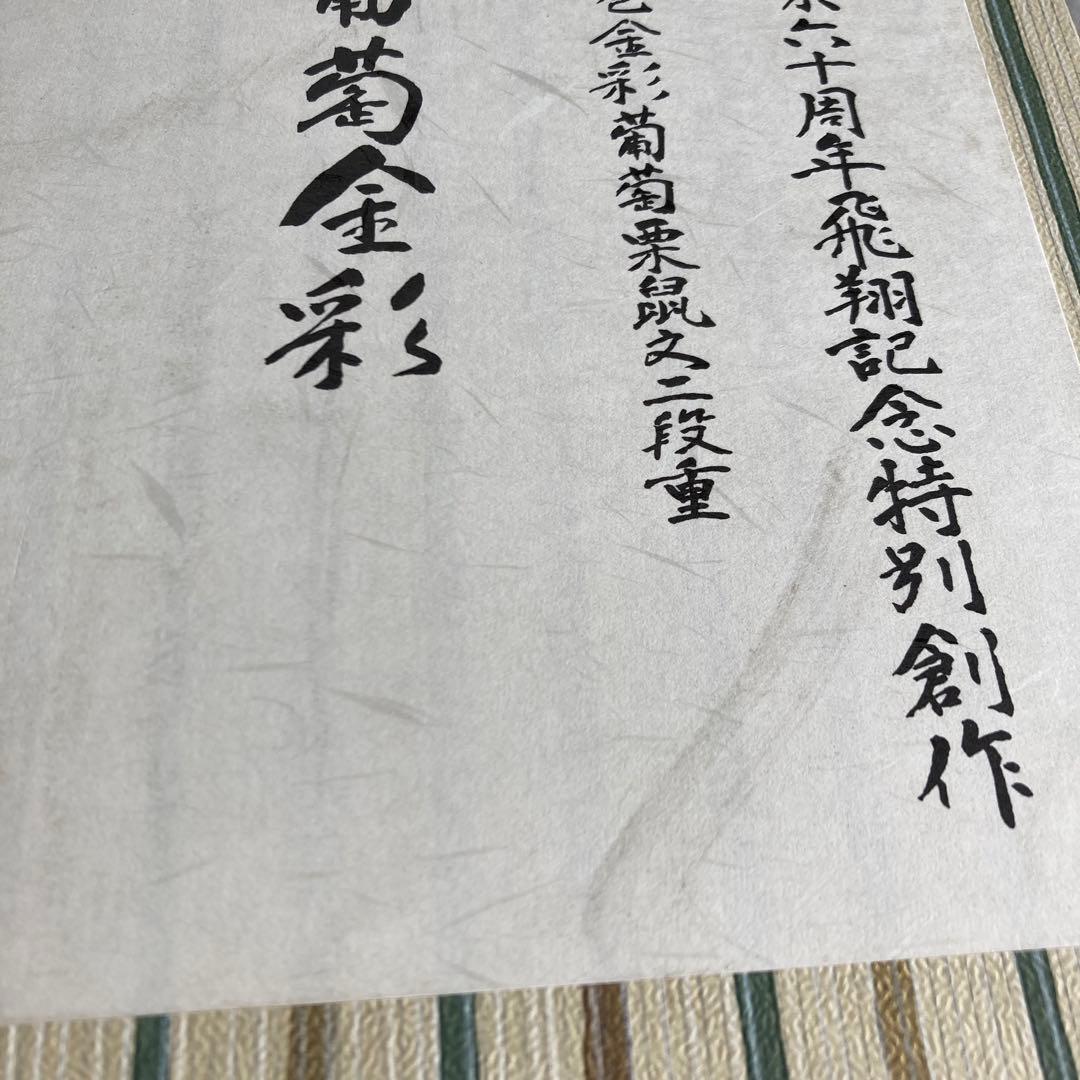 六十周年飛翔記念特別創作
金彩葡萄栗鼠文二段重
葡萄金彩